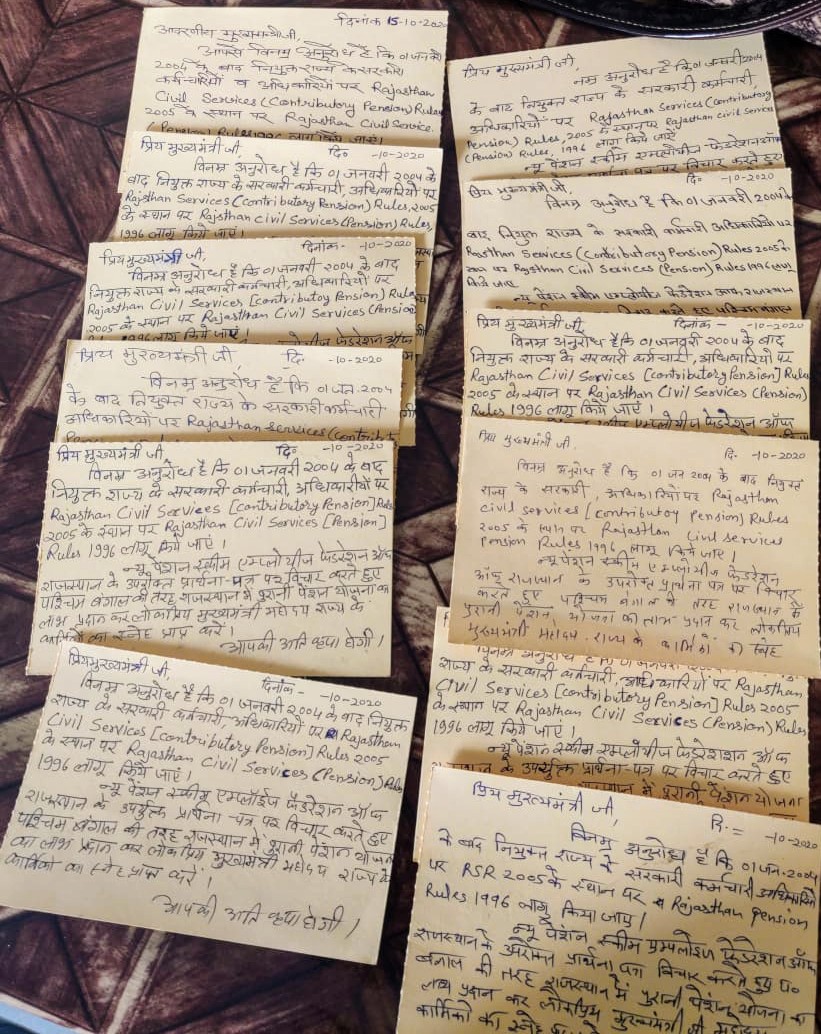 दिनांक 15-10-2020
आदरणीय मुख्यमंत्री जी,
आपसे विनम्र अनुरोध है कि 01 जनवरी
2004 के बाद नियुक्त राज्य के सरकारी
कर्मचारियों व अधिकारियों पर Rajasthan
Civil Services (Contributory Pension) Rules
2005 के स्थान पर Rajasthan Civil Service
(Pension) Rules 1996 लागू किये जाएं।
प्रिय मुख्यमंत्री जी दि० -10-2020
विनम्र अनुरोध है कि 01 जनवरी 2004 के
बाद नियुक्त राज्य के सरकारी कर्मचारी, अधिकारियों पर
Rajasthan Services (Contributory Pension) Rules, 2005
के स्थान पर Rajasthan Civil Services (Pension) Rules,
1996 लागू किये जाएं।
प्रिय मुख्यमंत्री जी, दिनांक- -10-2020
विनम्र अनुरोध है कि 01 जनवरी 2004 के बाद
नियुक्त राज्य के सरकारी कर्मचारी, अधिकारियों पर
Rajasthan Civil Services [Contributoy Pension] Rules
2005 के स्थान पर Rajasthan Civil Services (Pension)
1996 लागू किये जाएं।
प्रिय मुख्यमंत्री जी, दि -10-2020
विनम्र अनुरोध है कि 01 जन. 2004
के बाद नियुक्त राज्य के सरकारी कर्मचारी
अधिकारियों पर Rajasthan Services (Contribut
प्रिय मुख्यमंत्री जी, दि० -10-2020
विनम्र अनुरोध है कि 01 जनवरी 2004 के बाद
नियुक्त राज्य के सरकारी कर्मचारी, अधिकारीयों पर
Rajasthan Civil Services [Contributory Pension] Rules
2005 के स्थान पर Rajasthan Civil Services [Pension]
Rules 1996 लागू किये जाएं।
न्यू पेंशन स्कीम एम्प्लोयीज फेडरेशन ऑफ
राजस्थान के उपर्युक्त प्रार्थना-पत्र पर विचार करते हुए
पश्चिम बंगाल की तरह राजस्थान में पुरानी पेंशन योजना का
लाभ प्रदान कर लोकप्रिय मुख्यमंत्री महोदय राज्य के
कार्मिकों का स्नेह प्राप्त करें।
आपकी अति कृपा होगी।
प्रिय मुख्यमंत्री जी, दिनांक- -10-2020
विनम्र अनुरोध है कि 01 जनवरी 2004 के बाद नियुक्त
राज्य के सरकारी कर्मचारी, अधिकारियों पर Rajasthan
Civil Services [Contributory Pension] Rules 2005
के स्थान पर Rajasthan Civil Services (Pension) Rules
1996 लागू किये जाएं।
न्यू पेंशन स्कीम एम्पलॉईज फेडरेशन ऑफ
राजस्थान के उपर्युक्त प्रार्थना-पत्र पर विचार करते हुए
पश्चिम बंगाल की तरह राजस्थान में पुरानी पेंशन योजना
का लाभ प्रदान कर लोकप्रिय मुख्यमंत्री महोदय राज्य के
कार्मिकों का स्नेह प्राप्त करें।
आपकी अति कृपा होगी।
प्रिय मुख्यमंत्री जी,
नम्र अनुरोध है कि 01 जनवरी 2004
के बाद नियुक्त राज्य के सरकारी कर्मचारी
अधिकारियों पर Rajasthan Services (Contributory
Pension) Rules, 2005 के स्थान पर Rajasthan Civil Service
(Pension) Rules, 1996 लागू किये जाएं
न्यू पेंशन स्कीम एम्पलोयीज फेडरेशन ऑफ
प्रार्थना पत्र पर विचार करते हुए
प्रिय मुख्यमंत्री जी, दि० -10-2020
विनम्र अनुरोध है कि 01 जनवरी 2004 के
बाद नियुक्त राज्य के सरकारी कर्मचारी अधिकारियों पर
Rajasthan Services (Contributory Pension) Rules 2005 के
स्थान पर Rajasthan Civil Services (Pension) Rules 1996 लागू
किये जाए
न्यू पेंशन स्कीम एम्पलोयीज फेडरेशन ऑफ राजस्थान
प्रिय मुख्यमंत्री जी, दिनांक - -10-2020
विनम्र अनुरोध है कि 01 जनवरी 2004 के बाद
नियुक्त राज्य के सरकारी कर्मचारी, अधिकारियों पर
Rajasthan Civil Services [Contributory Pension] Rules
2005 के स्थान पर Rajasthan Civil Services (Pension)
Rules 1996 लागू किये जाएं।
प्रिय मुख्यमंत्री जी, दि. -10-2020
विनम्र अनुरोध है कि 01 जन 2004 के बाद नियुक्त
राज्य के सरकारी, अधिकारियों पर Rajasthan
Civil Services [Contributoy Pension] Rules
2005 के स्थान पर Rajasthan Civil Services
Pension Rules 1996 लागू किये जाए।
न्यू पेंशन स्कीम एम्पलोयीज फेडरेशन
ऑफ राजस्थान के उपरोक्त प्रार्थना पत्र पर विचार
करते हुए पश्चिम बंगाल की तरह राजस्थान में
पुरानी पेंशन योजना का लाभ प्रदान कर लोकप्रिय
मुख्यमंत्री महोदय राज्य के कार्मिकों का स्नेह
राज्य के सरकारी कर्मचारी, अधिकारियों पर Rajasthan
Civil Services [Contributory Pension] Rules 2005
के स्थान पर Rajasthan Civil Services (Pension) Rules
1996 लागू किये जाएं।
न्यू पेंशन स्कीम एम्पलोयीज फेडरेशन ऑफ
के उपर्युक्त प्रार्थना-पत्र पर विचार करते हुए
में पुरानी पेंशन योजना
प्रिय मुख्यमंत्री जी, दि.= -10-2020
विनम्र अनुरोध है कि 01 जन. 2004
के बाद नियुक्त राज्य के सरकारी कर्मचारी अधिकारियों
पर RSR 2005 के स्थान पर Rajasthan Pension
Rules 1996 लागू किया जाए।
न्यू पेंशन स्कीम एम्पलोइज फेडरेशन ऑफ
राजस्थान के उपरोक्त प्रार्थना पत्र विचार करते हुए प०
बंगाल की तरह राजस्थान में पुरानी पेंशन योजना का
लाभ प्रदान कर लोकप्रिय मुख्यमंत्री जी
कार्मिकों का स्नेह